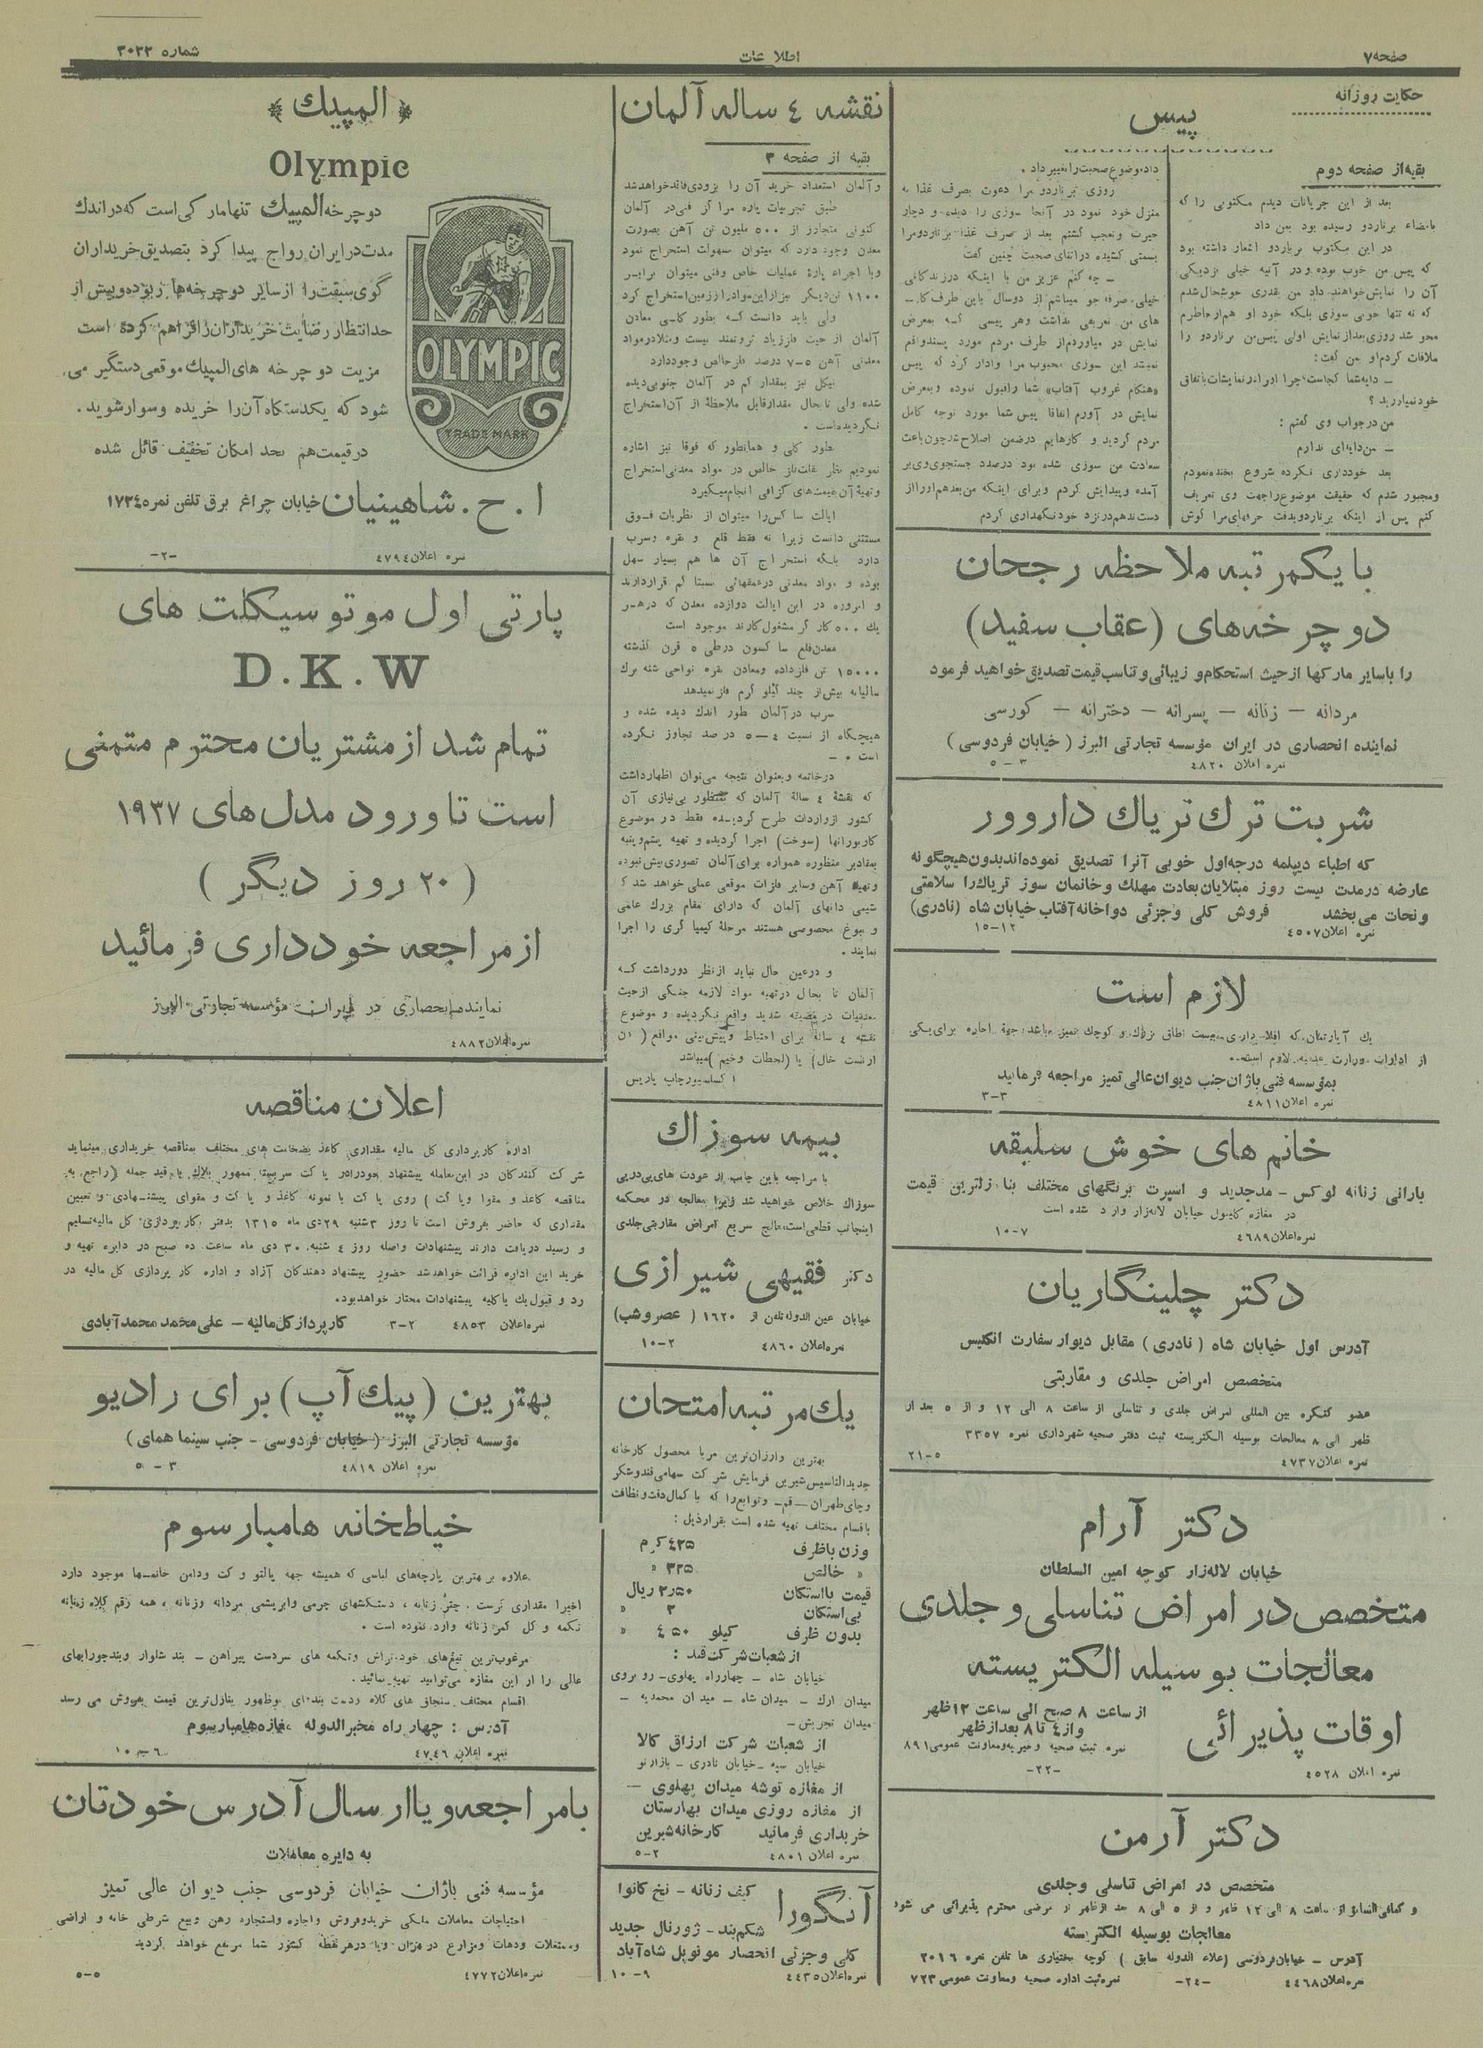 صفحه۷
اطلاعات
شماره ۳۰۲۲
حکایت روزانه
پیس
بقیه از صفحه دوم
بعد از این جریانات دیدم مکتوبی را که
بامضاء برناردو رسیده بود بمن داد
در این مکتوب برناردو اشعار داشته بود
که پیس من خوب بوده و در آتیه خیلی نزدیکی
آن را نمایش خواهند داد من بقدری خوشحال شدم
که نه تنها خوبی سوزی بلکه خود او هم از خاطرم
محو شد روزی بعد از نمایش اولی پیس من برناردو را
ملاقات کردم او بمن گفت:
ـ دایه شما کجاست؛ چرا او را در نمایشات باتفاق
خود نمیآورید ؟
من در جواب وی گفتم :
ـ من دایه‌ای ندارم
بعد خودداری نکرده شروع بخنده نمودم
ومجبور شدم که حقیقت موضوع را جهت وی تعریف
کنم پس از اینکه برناردو بدقت حرفهای مرا گوش
داد، وضوع صحبت را تغییر داد .
روزی برناردو مرا دعوت بصرف غذا به
منزل خود نمود در آنجا سوزی را دیده و دچار
حیرت وتعجب گشتم بعد از صرف غذا برناردو مرا
بسمتی کشیده در اثنای صحبت چنین گفت
ـ چه کنم عزیز من با اینکه در زندگانی
خیلی صرفه جو میباشم از دوسال باین طرف کار ـ
های من تعریفی نداشت وهر پیسی که بمعرض
نمایش در میاوردم از طرف مردم مورد پسند واقع
نمیشد این سوزی محبوب مرا وادار کرد که پیس
«هنگام غروب آفتاب» شما را قبول نموده و بمعرض
نمایش در آورم اتفاقا پیس شما مورد توجه کامل
مردم گردید و کارهایم در ضمن اصلاح شد چون باعث
سعادت من سوزی شده بود درصدد جستجوی وی بر
آمده و پیدایش کردم و برای اینکه من بعد هم او را از
دست ندهم در نزد خود نگهداری کردم
با یکمرتبه ملاحظه رجحان
دوچرخه‌های (عقاب سفید)
را با سایر مارکها از حیث استحکام و زیبائی و تناسب قیمت تصدیق خواهید فرمود
مردانه — زنانه — پسرانه — دخترانه — کورسی
نماینده انحصاری در ایران مؤسسه تجارتی البرز ( خیابان فردوسی )
نمره اعلان ٤٨٢٠ ۳ — ٥
شربت ترك ترياك داروور
که اطباء دیپلمه درجه اول خوبی آنرا تصدیق نموده اند بدون هیچگونه
عارضه در مدت بیست روز مبتلایان بعادت مهلك و خانمان سوز تریاك را سلامتی
و نجات می بخشد فروش کلی و جزئی دواخانه آفتاب خیابان شاه (نادری)
نمره اعلان ٤٥٠٧ ١٢—١٥
لازم است
بمؤسسه فنی باژان جنب دیوان عالی تمیز مراجعه فرمایید
نمره اعلان ٤٨١١ ۳-۳
خانم های خوش سلیقه
بارانی زنانه لوکس - مد جدید و اسپرت برنگهای مختلف بنازلترین قیمت
در مغازه کاپیتول خیابان لاله‌زار وارد شده است
نمره اعلان ٤٦٨٩ ٧—١٠
دکتر چلینگاریان
آدرس اول خیابان شاه ( نادری ) مقابل دیوار سفارت انگلیس
متخصص امراض جلدی و مقاربتی
عضو کنگره بین المللی امراض جلدی و تناسلی از ساعت ۸ الی ۱۲ و از ۵ بعد از
ظهر الی ۸ معالجات بوسیله الکتریسته ثبت دفتر صحیه شهرداری نمره ۳۳۵۷
نمره اعلان ٤٧٣٧ ٥—٢١
دکتر آرام
خیابان لاله‌زار کوچه امین السلطان
متخصص در امراض تناسلی و جلدی
معالجات بوسیله الکتریسته
اوقات پذیرائی
از ساعت ۸ صبح الی ساعت ۱۲ ظهر
و از ٤ تا ۸ بعد از ظهر
نمره ثبت صحیه و خیریه و معاونت عمومی ۸۹۱
نمره اعلان ٤٥٢٨ —۲۲—
دکتر آرمن
متخصص در امراض تناسلی و جلدی
و کمافی السابق از ساعت ۸ الی ۱۲ ظهر و از ۵ الی ۸ بعد از ظهر از مرضی محترم پذیرائی می شود
معالجات بوسیله الکتریسته
آدرس - خیابان فردوسی (علاء الدوله سابق ) کوچه بختیاری ها تلفن نمره ۲۰۱٦
نمره اعلان ٤٤٦٨ —٢٤— نمره ثبت اداره صحیه ومعاونت عمومی ۷۲۳
نقشه ٤ ساله آلمان
بقیه از صفحه ۳
وآلمان استعداد خرید آن را بزودی فاقد خواهد شد
طبق تجربیات پاره مراکز فنی در آلمان
کنونی متجاوز از ٥٠٠ ملیون تن آهن بصورت
معدن وجود دارد که میتوان بسهولت استخراج نمود
وبا اجراء پارهٔ عملیات خاص وفنی میتوان برابر
۱۱۰۰ تن دیگر نیز از این مواد از زمین استخراج کرد
ولی باید دانست که بطور کلی معادن
آلمان از حیث فلز زیاد ثروتمند نیست ومثلا در مواد
معدنی آهن ٥-٧ درصد فلز خالص وجود دارد
نیکل نیز بمقدار کم در آلمان جنوبی دیده
شده ولی تابحال مقدار قابل ملاحظهٔ از آن استخراج
نگردیده است .
بطور کلی و همانطور که فوقا نیز اشاره
نمودیم بنظر علت فلز خالص در مواد معدنی استخراج
وتهیهٔ آن بقیمت های گزافی انجام میگیرد
ایالت ساکس را میتوان از نظریات فوق
مستثنی دانست زیرا نه فقط قلع و نقره وسرب
دارد بلکه استخراج آن ها هم بسیار سهل
بوده و مواد معدنی در عمقهای نسبتا کم قرار دارند
و امروزه در این ایالت دوازده معدن که در هر
یك ٥٠٠ کارگر مشغول کارند موجود است
معدن قلع ساکسون در طی ٥ قرن گذشته
١٥٠٠٠ تن فلز داده ومعادن نقره نواحی شنه برك
سالیانه بیش از چند کیلو گرم فلز نمیدهد
سرب در آلمان بطور اندك دیده شده و
هیچگاه از نسبت ٤—٥ در صد تجاوز نکرده
است .
درخاتمه وبعنوان نتیجه می‌توان اظهار داشت
که نقشهٔ ٤ سالهٔ آلمان که بمنظور بی‌نیازی آن
کشور از واردات طرح گردیده فقط در موضوع
کاربورانها (سوخت) اجرا گردیده و تهیه پشم و پنبه
بمقادیر منظوره همواره برای آلمان تصوری بیش نبوده
وتهیه آهن وسایر فلزات موقعی عملی خواهد شد که
شیمی دانهای آلمان که دارای مقام بزرك علمی
و نبوغ مخصوصی هستند مرحلهٔ کیمیا گری را اجرا
نمایند .
و درعین حال نباید از نظر دور داشت که
آلمان تا بحال در تهیه مواد لازمه جنگی از حیث
اکسلسیور چاپ پاریس
بیمه سوزاك
با مراجعه باین جانب از عودت های پی‌درپی
سوزاك خلاص خواهید شد زیرا معالجه در محکمه
اینجانب قطعی است، معالج سریع امراض مقاربتی جلدی
دکتر فقیهی شیرازی
خیابان عین الدوله تلفن از ١٦٢٠ ( عصر وشب)
نمره اعلان ٤٨٦٠ ٢—١٠
یك مرتبه امتحان
بهترین وارزان‌ترین مربا محصول کارخانه
جدید التاسیس شیرین فرمایش شرکت سهامی قند وشکر
وچای طهران — قم — وتوابع را که با کمال دقت و نظافت
باقسام مختلف تهیه شده است بقرار ذیل :
وزن باظرف ٤٢٥ گرم
» خالص ٣٢٥ »
قیمت با استکان ٢ر٥٠ ریال
بی استکان ٢ »
بدون ظرف کیلو ٤ر٥٠ »
از شعبات شرکت قند :
خیابان شاه — چهارراه پهلوی — روبروی
میدان ارك — میدان شاه — میدان محمدیه —
میدان تجریش —
از شعبات شرکت ارزاق کالا
خیابان سپه — خیابان نادری - بازار نو
از مغازه توشه میدان پهلوی —
از مغازه روزی میدان بهارستان
خریداری فرمائید کارخانه شیرین
نمره اعلان ٤٨٠١ ٢—٥
آنگورا
کیف زنانه - نخ کانوا
شکم‌بند - ژورنال جدید
کلی وجزئی انحصار مونوپل شاه آباد
نمره اعلان ٤٤٣٥ ٩—١٠
﴿ المپيك ﴾
Olympic
دوچرخه المپيك تنها مارکی است که در اندك
مدت در ایران رواج پیدا کرد بتصدیق خریداران
گوی سبقت را از سایر دوچرخه ها ربوده و بیش از
حد انتظار رضایت خریداران را فراهم کرده است
مزیت دوچرخه های المپيك موقعی دستگیر می
شود که یکدستگاه آن را خریده و سوار شوید.
در قیمت هم بحد امکان تخفیف قائل شده
OLYMPIC
TRADE MARK
ا . ح . شاهینیان خیابان چراغ برق تلفن نمره ١٧٣٤
نمره اعلان ٤٧٩٤ —٢—
پارتی اول موتوسیکلت های
D.K.W
تمام شد از مشتریان محترم متمنی
است تا ورود مدل های ۱۹۳۷
( ۲۰ روز دیگر )
از مراجعه خودداری فرمائید
نماینده انحصاری در ایران مؤسسه تجارتی البرز
نمره اعلان ٤٨٨٢
اعلان مناقصه
اداره کارپردازی کل مالیه مقداری کاغذ بضخامت های مختلف بمناقصه خریداری مینماید
شرکت کنندگان در این معامله پیشنهاد خود را در پاکت سربسته ممهور بلاك با قید جمله (راجع به
مناقصه کاغذ و مقوا و پاکت ) روی پاکت با نمونه کاغذ و پاکت و مقوای پیشنهادی و تعیین
مقداری که حاضر بفروش است تا روز ٣ شنبه ٢٩ دی ماه ١٣١٥ بدفتر کارپردازی کل مالیه تسلیم
و رسید دریافت دارند پیشنهادات واصله روز ٤ شنبه ٣٠ دی ماه ساعت ده صبح در دایره تهیه و
خرید این اداره قرائت خواهد شد حضور پیشنهاد دهندگان آزاد و اداره کارپردازی کل مالیه در
رد و قبول یك یا کلیه پیشنهادات مختار خواهد بود.
نمره اعلان ٤٨٥٣ ٢—٣ کارپرداز کل مالیه — علی محمد محمد آبادی
بهترین (پيك آپ) برای رادیو
مؤسسه تجارتی البرز ( خیابان فردوسی - جنب سینما همای )
نمره اعلان ٤٨١٩ ٣ — ٥
خیاطخانه هامبارسوم
علاوه بر بهترین پارچه‌های لباسی که همیشه جهه پالتو و کت ودامن خانمها موجود دارد
اخیرا مقداری کرست، چتر زنانه ، دستکشهای چرمی وابریشمی مردانه وزنانه ، همه رقم کلاه زنانه
تکمه و گل کمر زنانه وارد نموده است .
مرغوب‌ترین تیغ‌های خودتراش وتکمه های سردست پیراهن — بند شلوار وبند جورابهای
عالی را از این مغازه می‌توانید تهیه نمائید.
آدرس : چهار راه مخبرالدوله مغازه هامبارسوم
نمره اعلان ٤٧٤٦ ٦—١٠
با مراجعه و یا ارسال آدرس خودتان
به دایره معاملات
مؤسسه فنی باژان خیابان فردوسی جنب دیوان عالی تمیز
احتیاجات معاملات ملکی خرید وفروش واجاره واستجاره رهن وبیع شرطی خانه و اراضی
ومستغلات ودهات ومزارع در طهران ویا در هر نقطه کشور شما مرتفع خواهد گردید
نمره اعلان ٤٧٧٢ ٥—٥